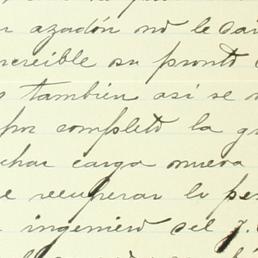 azadón no le
increible su pronto
también así se
por completo la
char carga nueva
e recuperar lo
ingeniero del